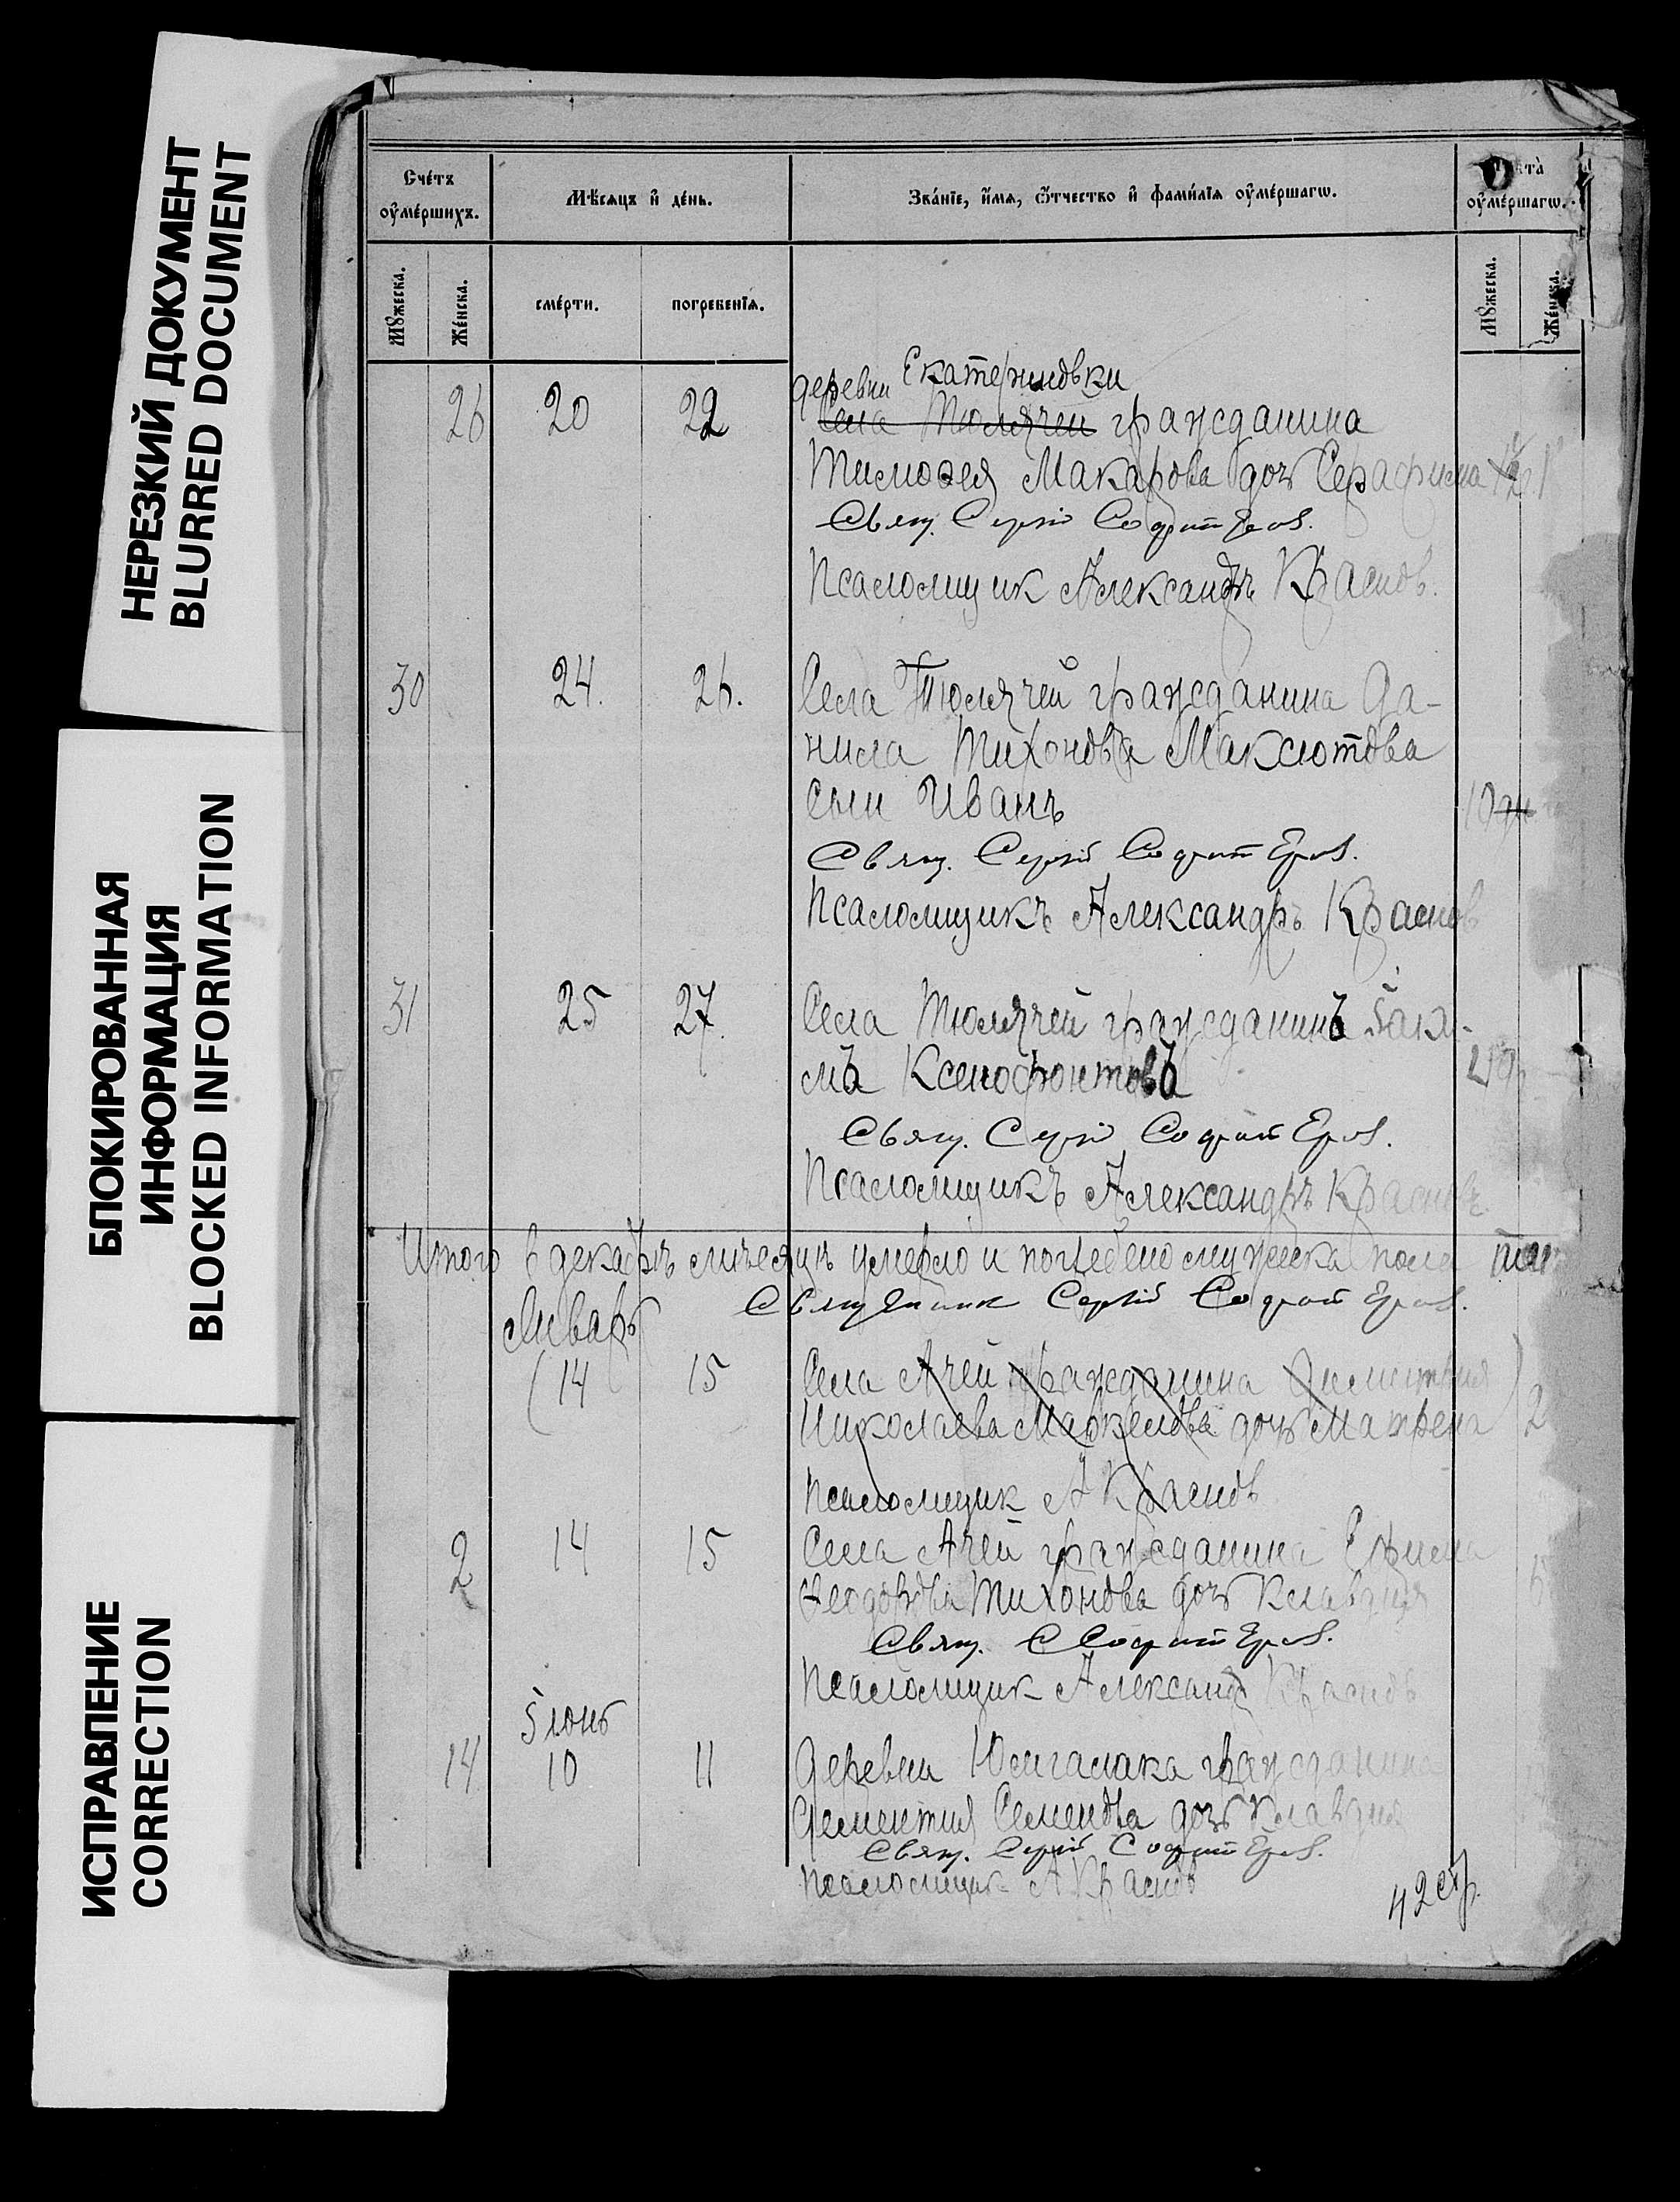 НЕРЕЗКИЙ ДОКУМЕНТ
BLURRED DOCUMENT
БЛОКИРОВАННАЯ
ИНФОРМАЦИЯ
BLOCKED INFORMATION
ИСПРАВЛЕНИЕ
CORRECTION
Счéтъ ѹ҆мéршихъ.
Мѣ́сѧцъ и҆ дéнь.
Звáнїе, и҆́мѧ, ѻ҆́тчество и҆ фамѝлїѧ ѹ҆мéршагѡ.
ѹ҆мéршагѡ.
Мꙋ́жеска.
Жéнска.
смéрти.
погребéнїѧ.
Мꙋ́жеска.
Жéнска.
деревни Екатериновки
26 20 22 Села Тюлячей гражданина
Тимофея Макарова дочь Серафима
Свящ. Сергій
Псаломщик Александръ Краснов.
30 24. 26. Села Тюлячей гражданина Да-
нила Тихонова Максютова
сын Иванъ 10 дн
Свящ. Сергій
Псаломщикъ Александръ Краснов
31 25 27. Села Тюлячей гражданинъ Іаки-
мъ Ксенофонтовъ
Свящ. Сергій
Псаломщикъ Александръ Краснов
Итого в декабрѣ мѣсяцѣ умерло и погребено мужеска пола
Священник Сергій
Январь
14 15 Села Ачей гражданина Димитрія
Николаева Маркелова дочь Матрена 2
Псаломщик А Краснов
2 14 15 Села Ачей гражданина Ефима
Феодорова Тихонова дочь Клавдия
Свящ. С
Псаломщик Александр Краснов
Іюнь
14 10 11 Деревни гражданина
Дементия Семенова дочь Клавдия
Свящ. Сергій
Псаломщик А Краснов
42 стр.